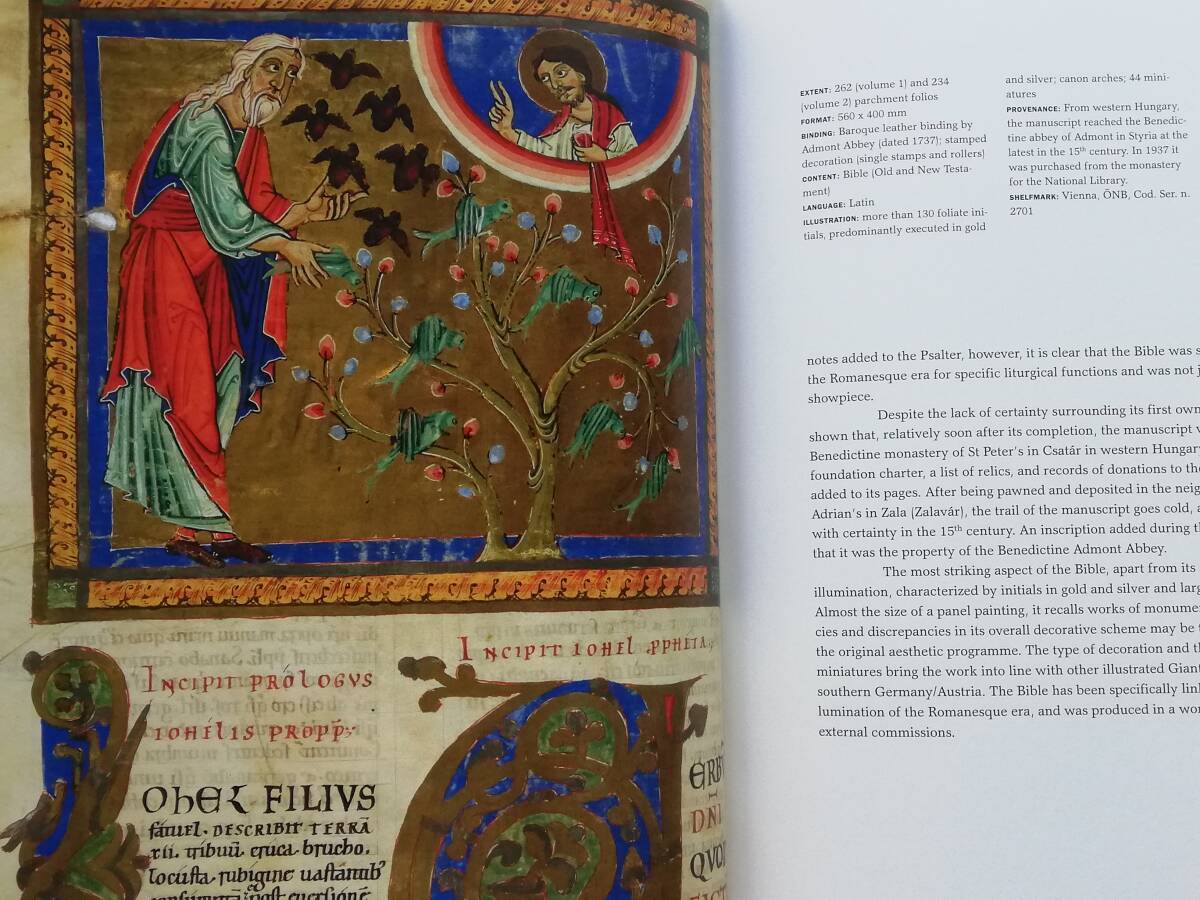 INCIPIT PROLOGVS
IOHELIS PROPP
INCIPIT IOHEL PPHETA
IOHEL FILIVS
fatuel. DESCRIBIT TERRA
xii. tribuū eruca brucho.
locusta rubigine uastantib'
ERBV
DNI
QVOD
EXTENT: 262 (volume 1) and 234
(volume 2) parchment folios
FORMAT: 560 x 400 mm
BINDING: Baroque leather binding by
Admont Abbey (dated 1737); stamped
decoration (single stamps and rollers)
CONTENT: Bible (Old and New Testa-
ment)
LANGUAGE: Latin
ILLUSTRATION: more than 130 foliate ini-
tials, predominantly executed in gold
and silver; canon arches; 44 mini-
atures
PROVENANCE: From western Hungary,
the manuscript reached the Benedic-
tine abbey of Admont in Styria at the
latest in the 15th century. In 1937 it
was purchased from the monastery
for the National Library.
SHELFMARK: Vienna, ÖNB, Cod. Ser. n.
2701
notes added to the Psalter, however, it is clear that the Bible was
the Romanesque era for specific liturgical functions and was not
showpiece.
Despite the lack of certainty surrounding its first
shown that, relatively soon after its completion, the manuscript
Benedictine monastery of St Peter's in Csatár in western Hungary
foundation charter, a list of relics, and records of donations to the
added to its pages. After being pawned and deposited in the
Adrian's in Zala (Zalavár), the trail of the manuscript goes cold,
with certainty in the 15th century. An inscription added during
that it was the property of the Benedictine Admont Abbey.
The most striking aspect of the Bible, apart from its
illumination, characterized by initials in gold and silver and
Almost the size of a panel painting, it recalls works of
cies and discrepancies in its overall decorative scheme may be
the original aesthetic programme. The type of decoration and
miniatures bring the work into line with other illustrated Giant
southern Germany/Austria. The Bible has been specifically
lumination of the Romanesque era, and was produced in a
external commissions.